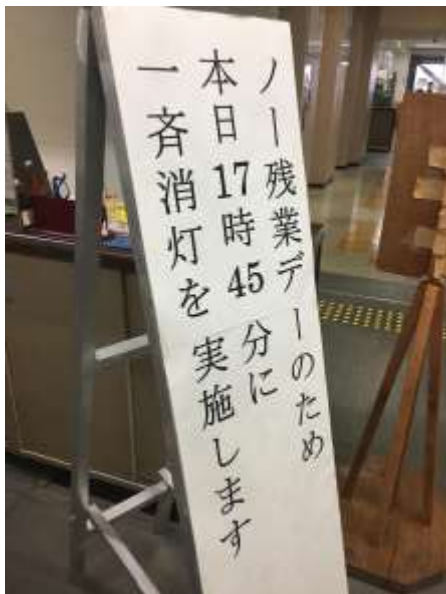 ノー残業デーのため
本日17時45分に
一斉消灯を実施します